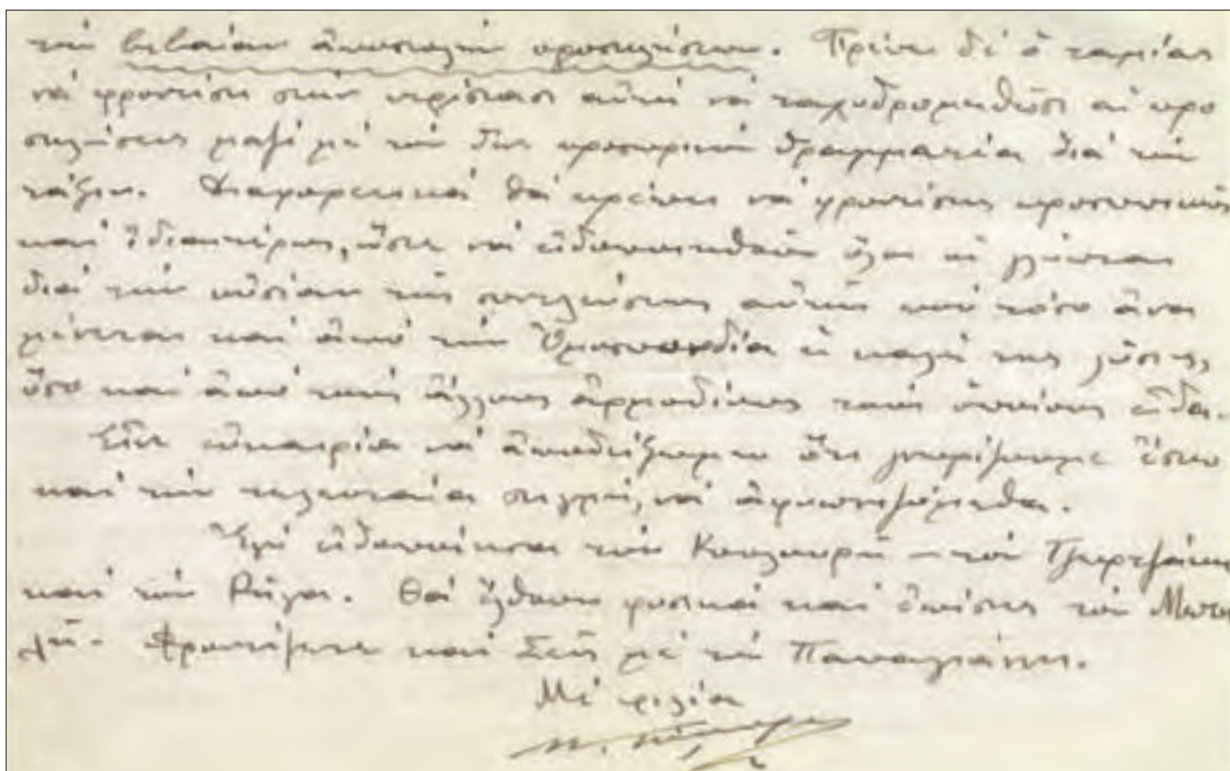 τὴν βεβαίαν ἀποστολὴν προσκλήσεων. Πρέπει δὲ ὁ ταμίας
νὰ φροντίση στὴν περίπτωσι αὐτὴ νὰ ταχυδρομηθῶσι αἱ προ
σκλήσεις μαζὶ μὲ τὴν προσωρινὴ γραμματέα διὰ τὴν
τάξιν. Διαφορετικὰ θὰ πρέπει νὰ φροντίσης προσωπικῶς
καὶ ἰδιαιτέρως, ὥστε νὰ εἰδοποιηθοῦν ὅλοι οἱ
διὰ τὴν οὐσίαν τῆς συνελεύσεως αὐτῆς ποὺ τόσο ἀνα
μένεται καὶ ἀπὸ τὴν Ὁμοσπονδία ἡ καλή της λύσις,
ὅσο καὶ ἀπὸ τοὺς ἄλλους ἁρμοδίους τοὺς ὁποίους εἶδα.
Εἶνε εὐκαιρία νὰ ἀποδείξωμεν ὅτι γνωρίζουμε ἔστω
καὶ τὴν τελευταία στιγμή, νὰ
Ἐγὼ εἰδοποίησα τὸν Κουλουρῆ – τὸν Τζωρτζάκη
καὶ τὸν Ρήγα. Θὰ ἔλθουν φυσικὰ καὶ ἐπίσης τὸν
Φροντίσετε καὶ Σεῖς μὲ τὸν Παναγιώτη.
Μὲ φιλία